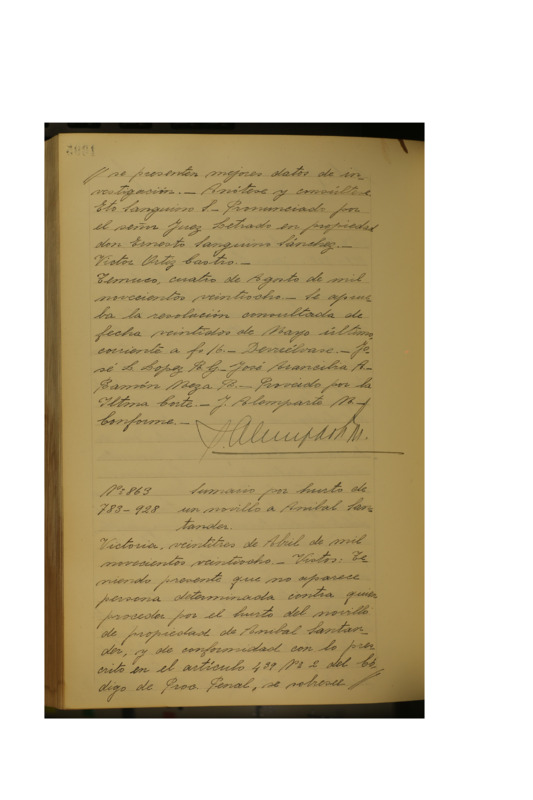 // se presenten mejores datos de in
vestigación.— Anótese y consúltese
Eto Sanguino S.— Pronunciado por
el señor Juez Letrado en propiedad
don Ernesto Sanguino Sánchez.—
Victor Ortiz Castro.—
Temuco, cuatro de Agosto de mil
novecientos veintiocho.— Se aprue
ba la resolución consultada de
fecha veintidos de Mayo último
corriente a fs. 16.— Devuélvase.— Jo
sé L. Lopez R.G.— José Arancibia A.—
Ramón Meza R.— Proveido por la
Iltma Corte.— J. Alemparte M.—
Conforme.— J. Alemparte M.
Nº 863 Sumario por hurto de
783-928 un novillo a Anibal San
tander.
Victoria, veintitres de Abril de mil
novecientos veintiocho.— Vistos: Te
niendo presente que no aparece
persona determinada contra quien
proceder por el hurto del novillo
de propiedad de Anibal Santan
der, y de conformidad con lo pres
crito en el artículo 439 Nº 2 del Có
digo de Proc. Penal, se sobresee //